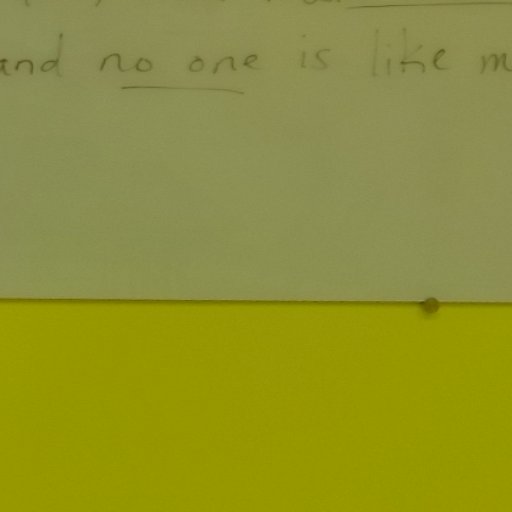 and no one is like m